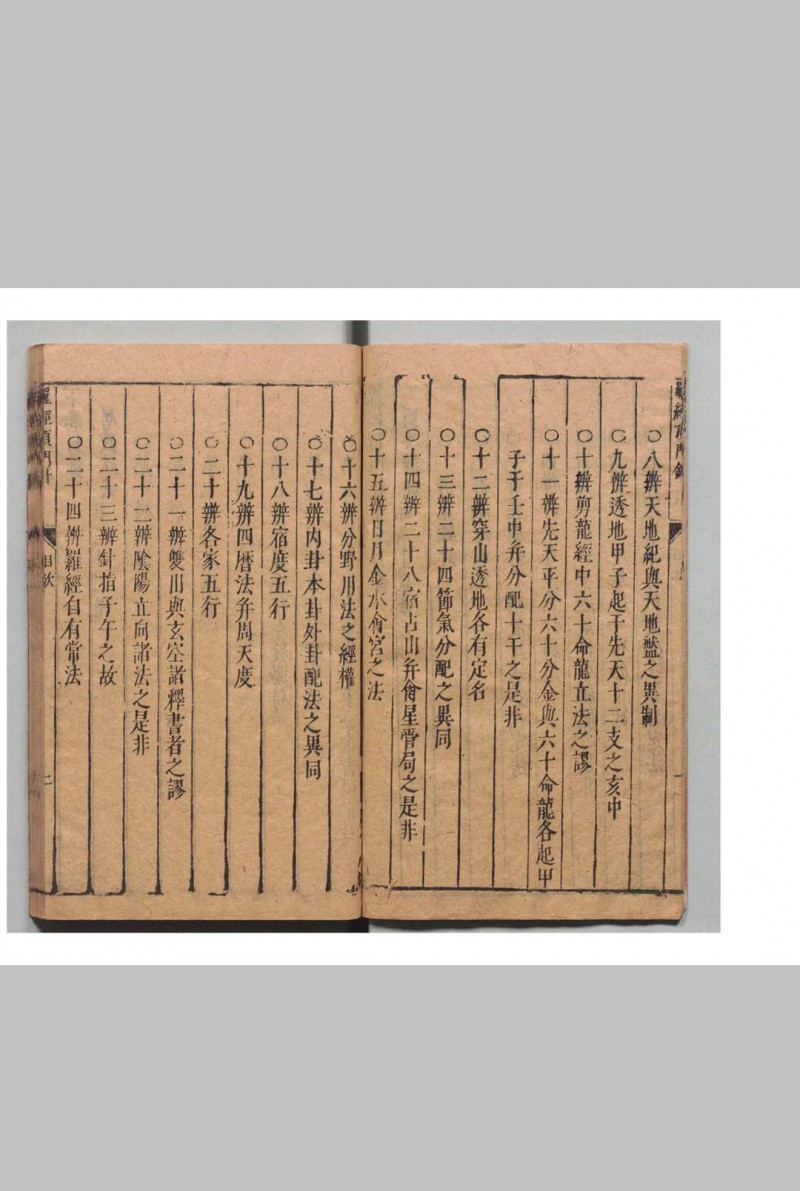 羅經頂門針
一
○八辨天地紀與天地盤之異制
○九辨透地甲子起于先天十二支之亥中
○十辨剪龍經中六十命龍立法之謬
○十一辨先天平分六十分金與六十命龍各起甲
子于壬中弁分配十干之是非
○十二辨穿山透地各有定名
○十三辨二十四節氣分配之異同
○十四辨二十八宿占山弁禽星管局之是非
○十五辨日月金水會宮之法
○十六辨分野用法之經權
○十七辨內卦本卦外卦配法之異同
○十八辨宿度五行
○十九辨四曆法弁周天度
○二十辨各家五行
○二十一辨雙山與玄空諸釋書者之謬
○二十二辨陰陽立向諸法之是非
○二十三辨針指子午之故
○二十四辨羅經自有常法
羅經頂門針
目次
二